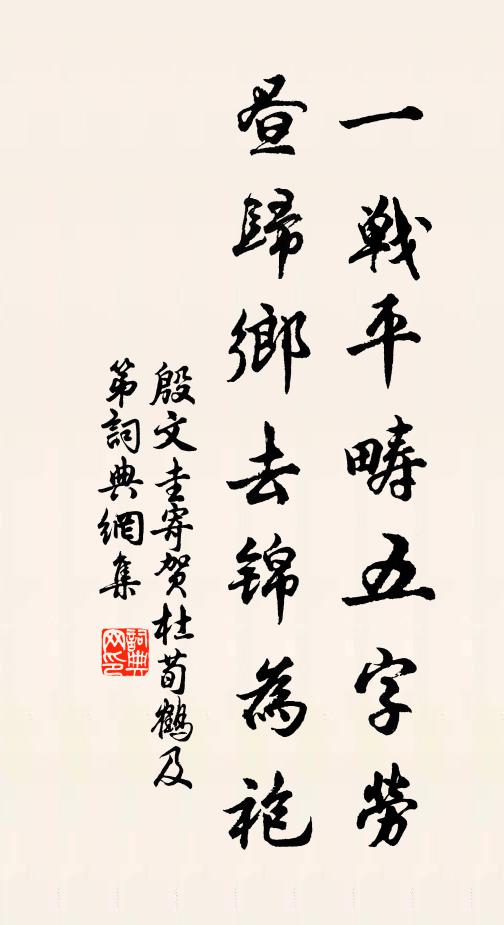 一戰平畴五字勞
昼歸鄉去錦為袍
殷文圭寄贺杜荀鶴及
第詞典網集
詞典网印